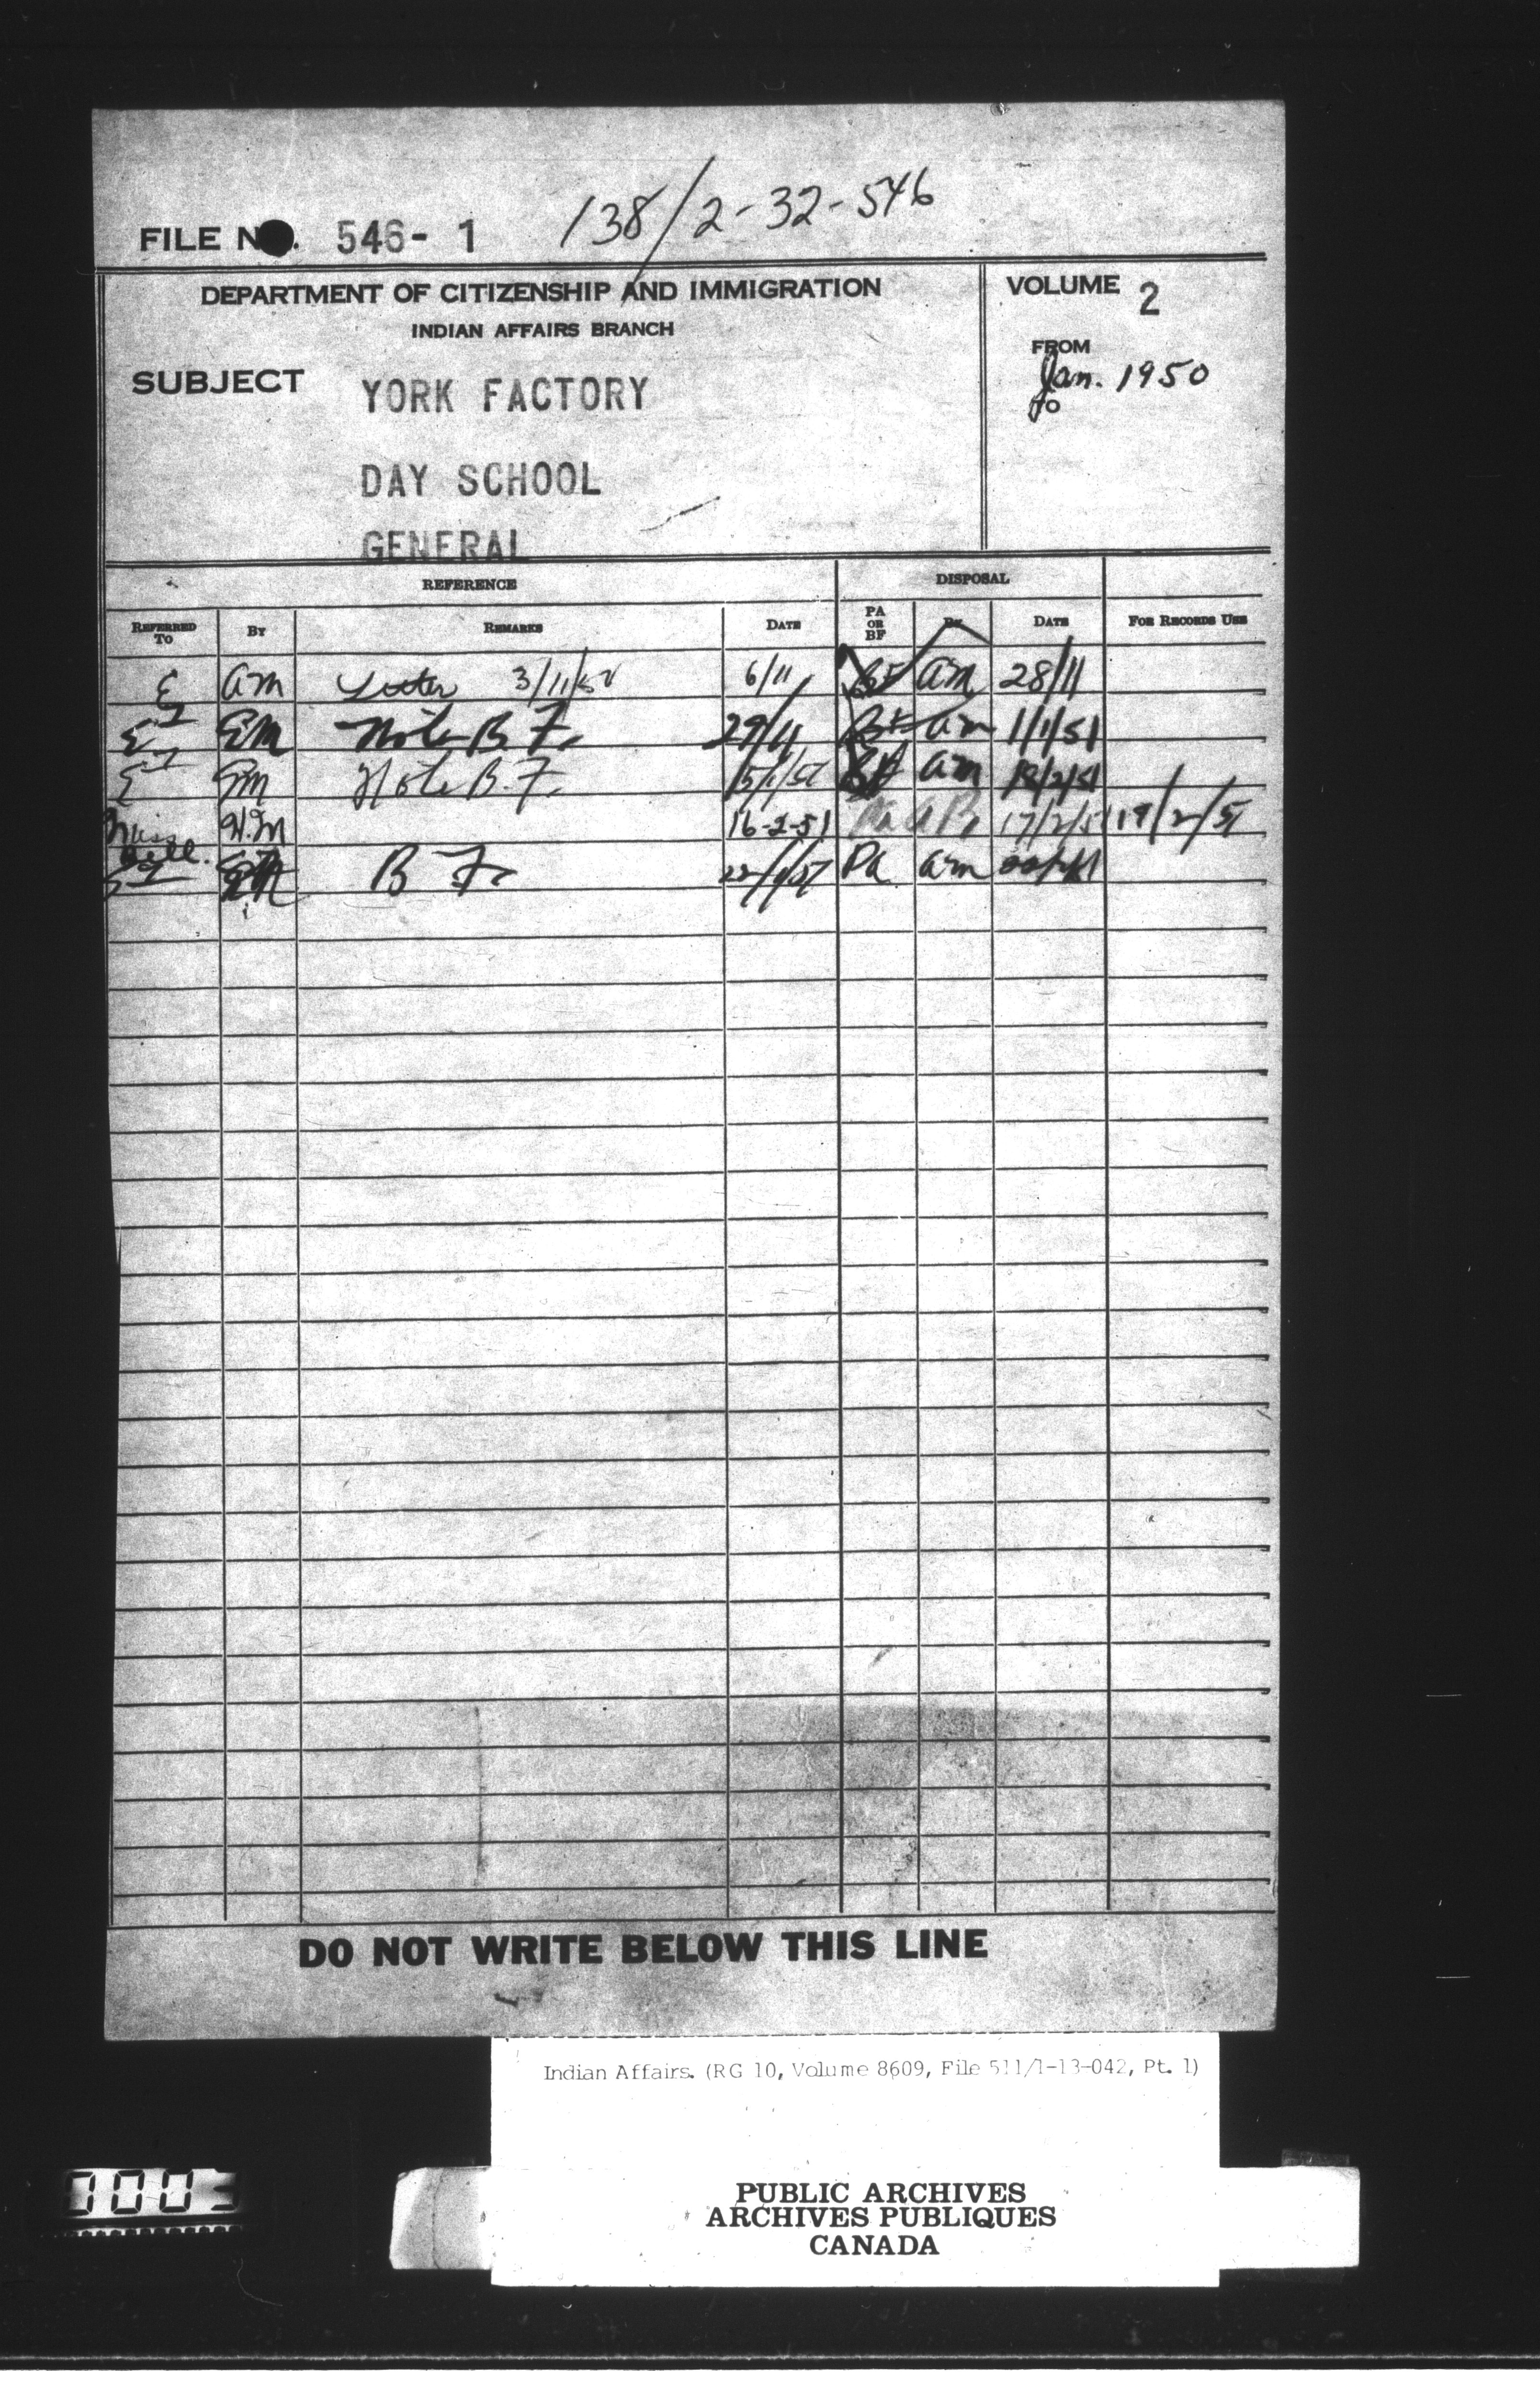 FILE NO. 546- 1 138/2-32-546
DEPARTMENT OF CITIZENSHIP AND IMMIGRATION
INDIAN AFFAIRS BRANCH
VOLUME 2
FROM
Jan. 1950
TO
SUBJECT YORK FACTORY
DAY SCHOOL
GENERAL
REFERENCE DISPOSAL
REFERRED TO BY REMARKS DATE PA OR BF BY DATE FOR RECORDS USE
am Letter 3/11/50 6/11 BF am 28/11
EM Note B.F. 29/11 BF am 1/1/51
EM Note B.F. am
Miss Bell. H.M 16-2-51 17/2/51 19/2/51
B F. Pa am
DO NOT WRITE BELOW THIS LINE
Indian Affairs. (RG 10, Volume 8609, File 511/1-13-042, Pt. 1)
PUBLIC ARCHIVES
ARCHIVES PUBLIQUES
CANADA